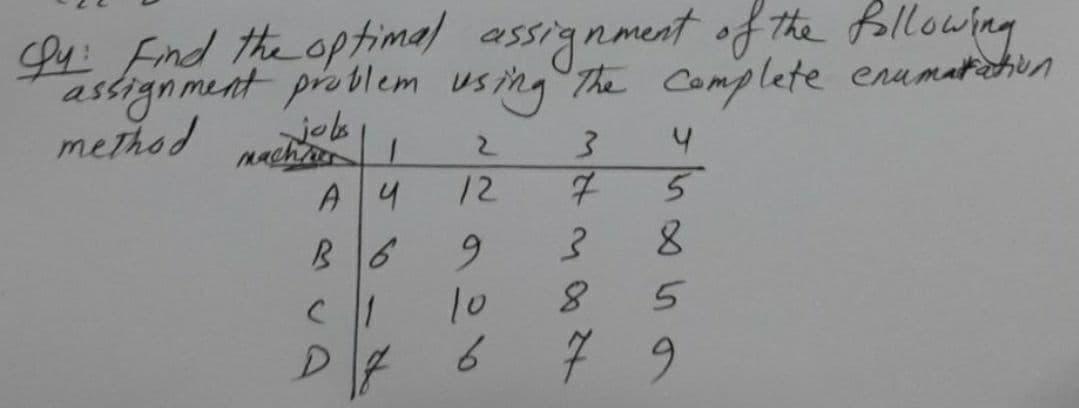 Q4: Find the optimal assignment of the following
assignment problem using The Complete enumaration
method
jobs 1 2 3 4
machines
A 4 12 7 5
B 6 9 3 8
C 1 10 8 5
D 7 6 7 9